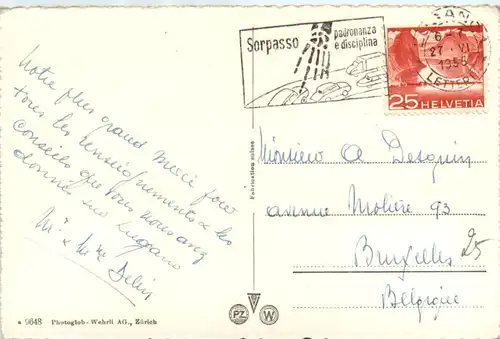 Notre plus grand merci pour
tous les renseignements & les
conseils que vous nous avez
donné sur Lugano
Mr & Mme
Sorpasso
padronanza
e disciplina
6-7
27. VI
1955
LETTERE
25 HELVETIA
Fabrication suisse
Monsieur A Desguin
avenue Molière 93
Bruxelles
25
Belgique
9648 Photoglob-Wehrli AG., Zürich
PZ W